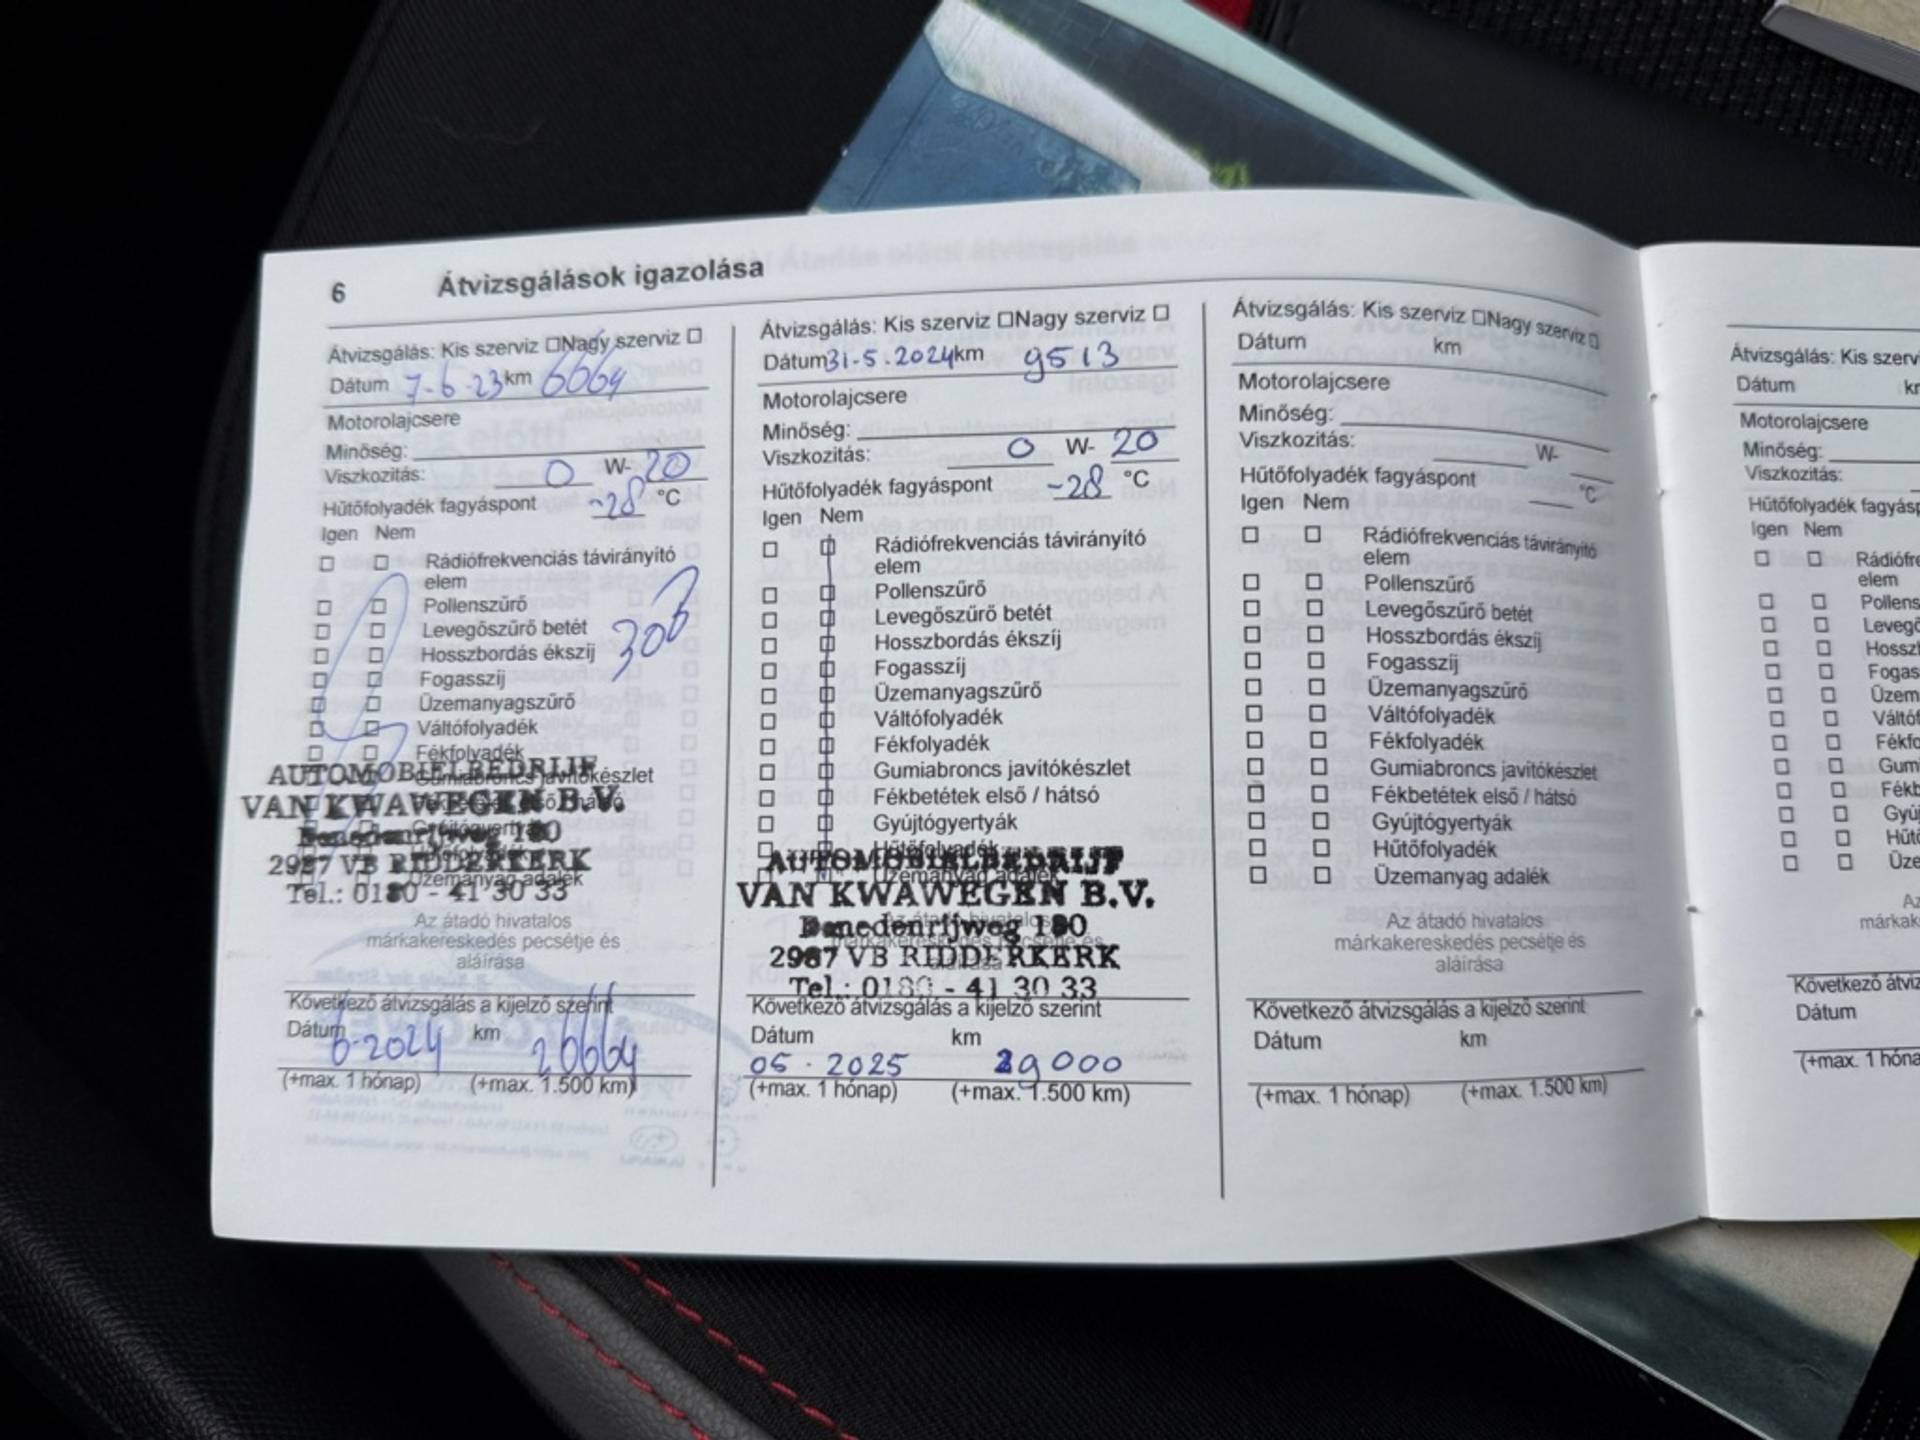 6 Átvizsgálások igazolása
Átvizsgálás: Kis szerviz □Nagy szerviz □
Dátum 7-6-23 km 6664
Motorolajcsere
Minőség:
Viszkozitás: 0 W- 20
Hűtőfolyadék fagyáspont -28 °C
Igen Nem
□ □ Rádiófrekvenciás távirányító
elem
□ □ Pollenszűrő
□ □ Levegőszűrő betét
□ □ Hosszbordás ékszíj
□ □ Fogasszíj
□ □ Üzemanyagszűrő
□ □ Váltófolyadék
□ □ Fékfolyadék
Gumiabroncs javítókészlet
Gyújtógyertyák
Üzemanyag adalék
AUTOMOBIELBEDRIJF
VAN KWAWEGEN B.V.
Benedenrijweg 180
2987 VB RIDDERKERK
Tel.: 0180 - 41 30 33
Az átadó hivatalos
márkakereskedés pecsétje és
aláírása
Következő átvizsgálás a kijelző szerint
Dátum km
6-2024 26664
(+max. 1 hónap) (+max. 1.500 km)
Átvizsgálás: Kis szerviz □Nagy szerviz □
Dátum 31-5.2024 km 9513
Motorolajcsere
Minőség:
Viszkozitás: 0 W- 20
Hűtőfolyadék fagyáspont -28 °C
Igen Nem
□ □ Rádiófrekvenciás távirányító
elem
□ □ Pollenszűrő
□ □ Levegőszűrő betét
□ □ Hosszbordás ékszíj
□ □ Fogasszíj
□ □ Üzemanyagszűrő
□ □ Váltófolyadék
□ □ Fékfolyadék
□ □ Gumiabroncs javítókészlet
□ □ Fékbetétek első / hátsó
□ □ Gyújtógyertyák
Hűtőfolyadék
Üzemanyag adalék
AUTOMOBIELBEDRIJF
VAN KWAWEGEN B.V.
Benedenrijweg 180
2987 VB RIDDERKERK
Tel.: 0180 - 41 30 33
Az átadó hivatalos
márkakereskedés pecsétje és
aláírása
Következő átvizsgálás a kijelző szerint
Dátum km
05 - 2025 29000
(+max. 1 hónap) (+max. 1.500 km)
Átvizsgálás: Kis szerviz □Nagy szerviz □
Dátum km
Motorolajcsere
Minőség:
Viszkozitás: W-
Hűtőfolyadék fagyáspont °C
Igen Nem
□ □ Rádiófrekvenciás távirányító
elem
□ □ Pollenszűrő
□ □ Levegőszűrő betét
□ □ Hosszbordás ékszíj
□ □ Fogasszíj
□ □ Üzemanyagszűrő
□ □ Váltófolyadék
□ □ Fékfolyadék
□ □ Gumiabroncs javítókészlet
□ □ Fékbetétek első / hátsó
□ □ Gyújtógyertyák
□ □ Hűtőfolyadék
□ □ Üzemanyag adalék
Az átadó hivatalos
márkakereskedés pecsétje és
aláírása
Következő átvizsgálás a kijelző szerint
Dátum km
(+max. 1 hónap) (+max. 1.500 km)
Átvizsgálás: Kis szerv
Dátum km
Motorolajcsere
Minőség:
Viszkozitás:
Hűtőfolyadék fagyásp
Igen Nem
□ □ Rádiófre
elem
□ □ Pollens
□ □ Levegő
□ □ Hosszb
□ □ Fogas
□ □ Üzem
□ □ Váltóf
□ □ Fékfo
□ □ Gumi
□ □ Fékb
□ □ Gyúj
□ □ Hűtő
□ □ Üze
Az
márkak
Következő átviz
Dátum
(+max. 1 hóna